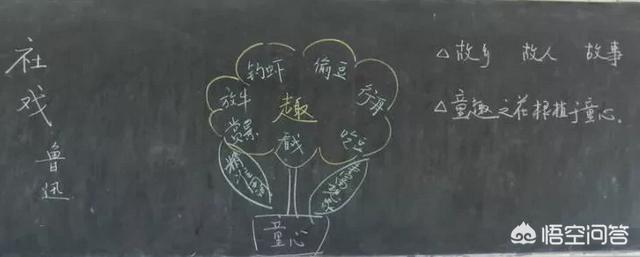 社戏
鲁迅
钓虾
偷豆
放牛
趣
赏景
戏
吃豆
童心
△故乡 故人 故事
△童趣之花根植于童心。
悟空问答